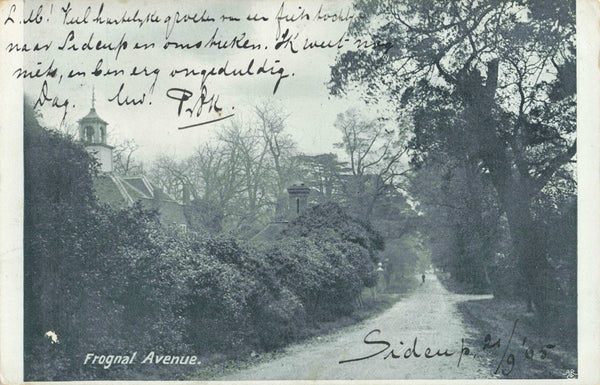 L. M! Veel hartelijke groeten van een fiets tocht
naar Sidcup en omstreken. Ik weet nog
niets, en ben erg ongeduldig.
Dag. Uw.
Frognal Avenue.
Sidcup. 21/9 '05